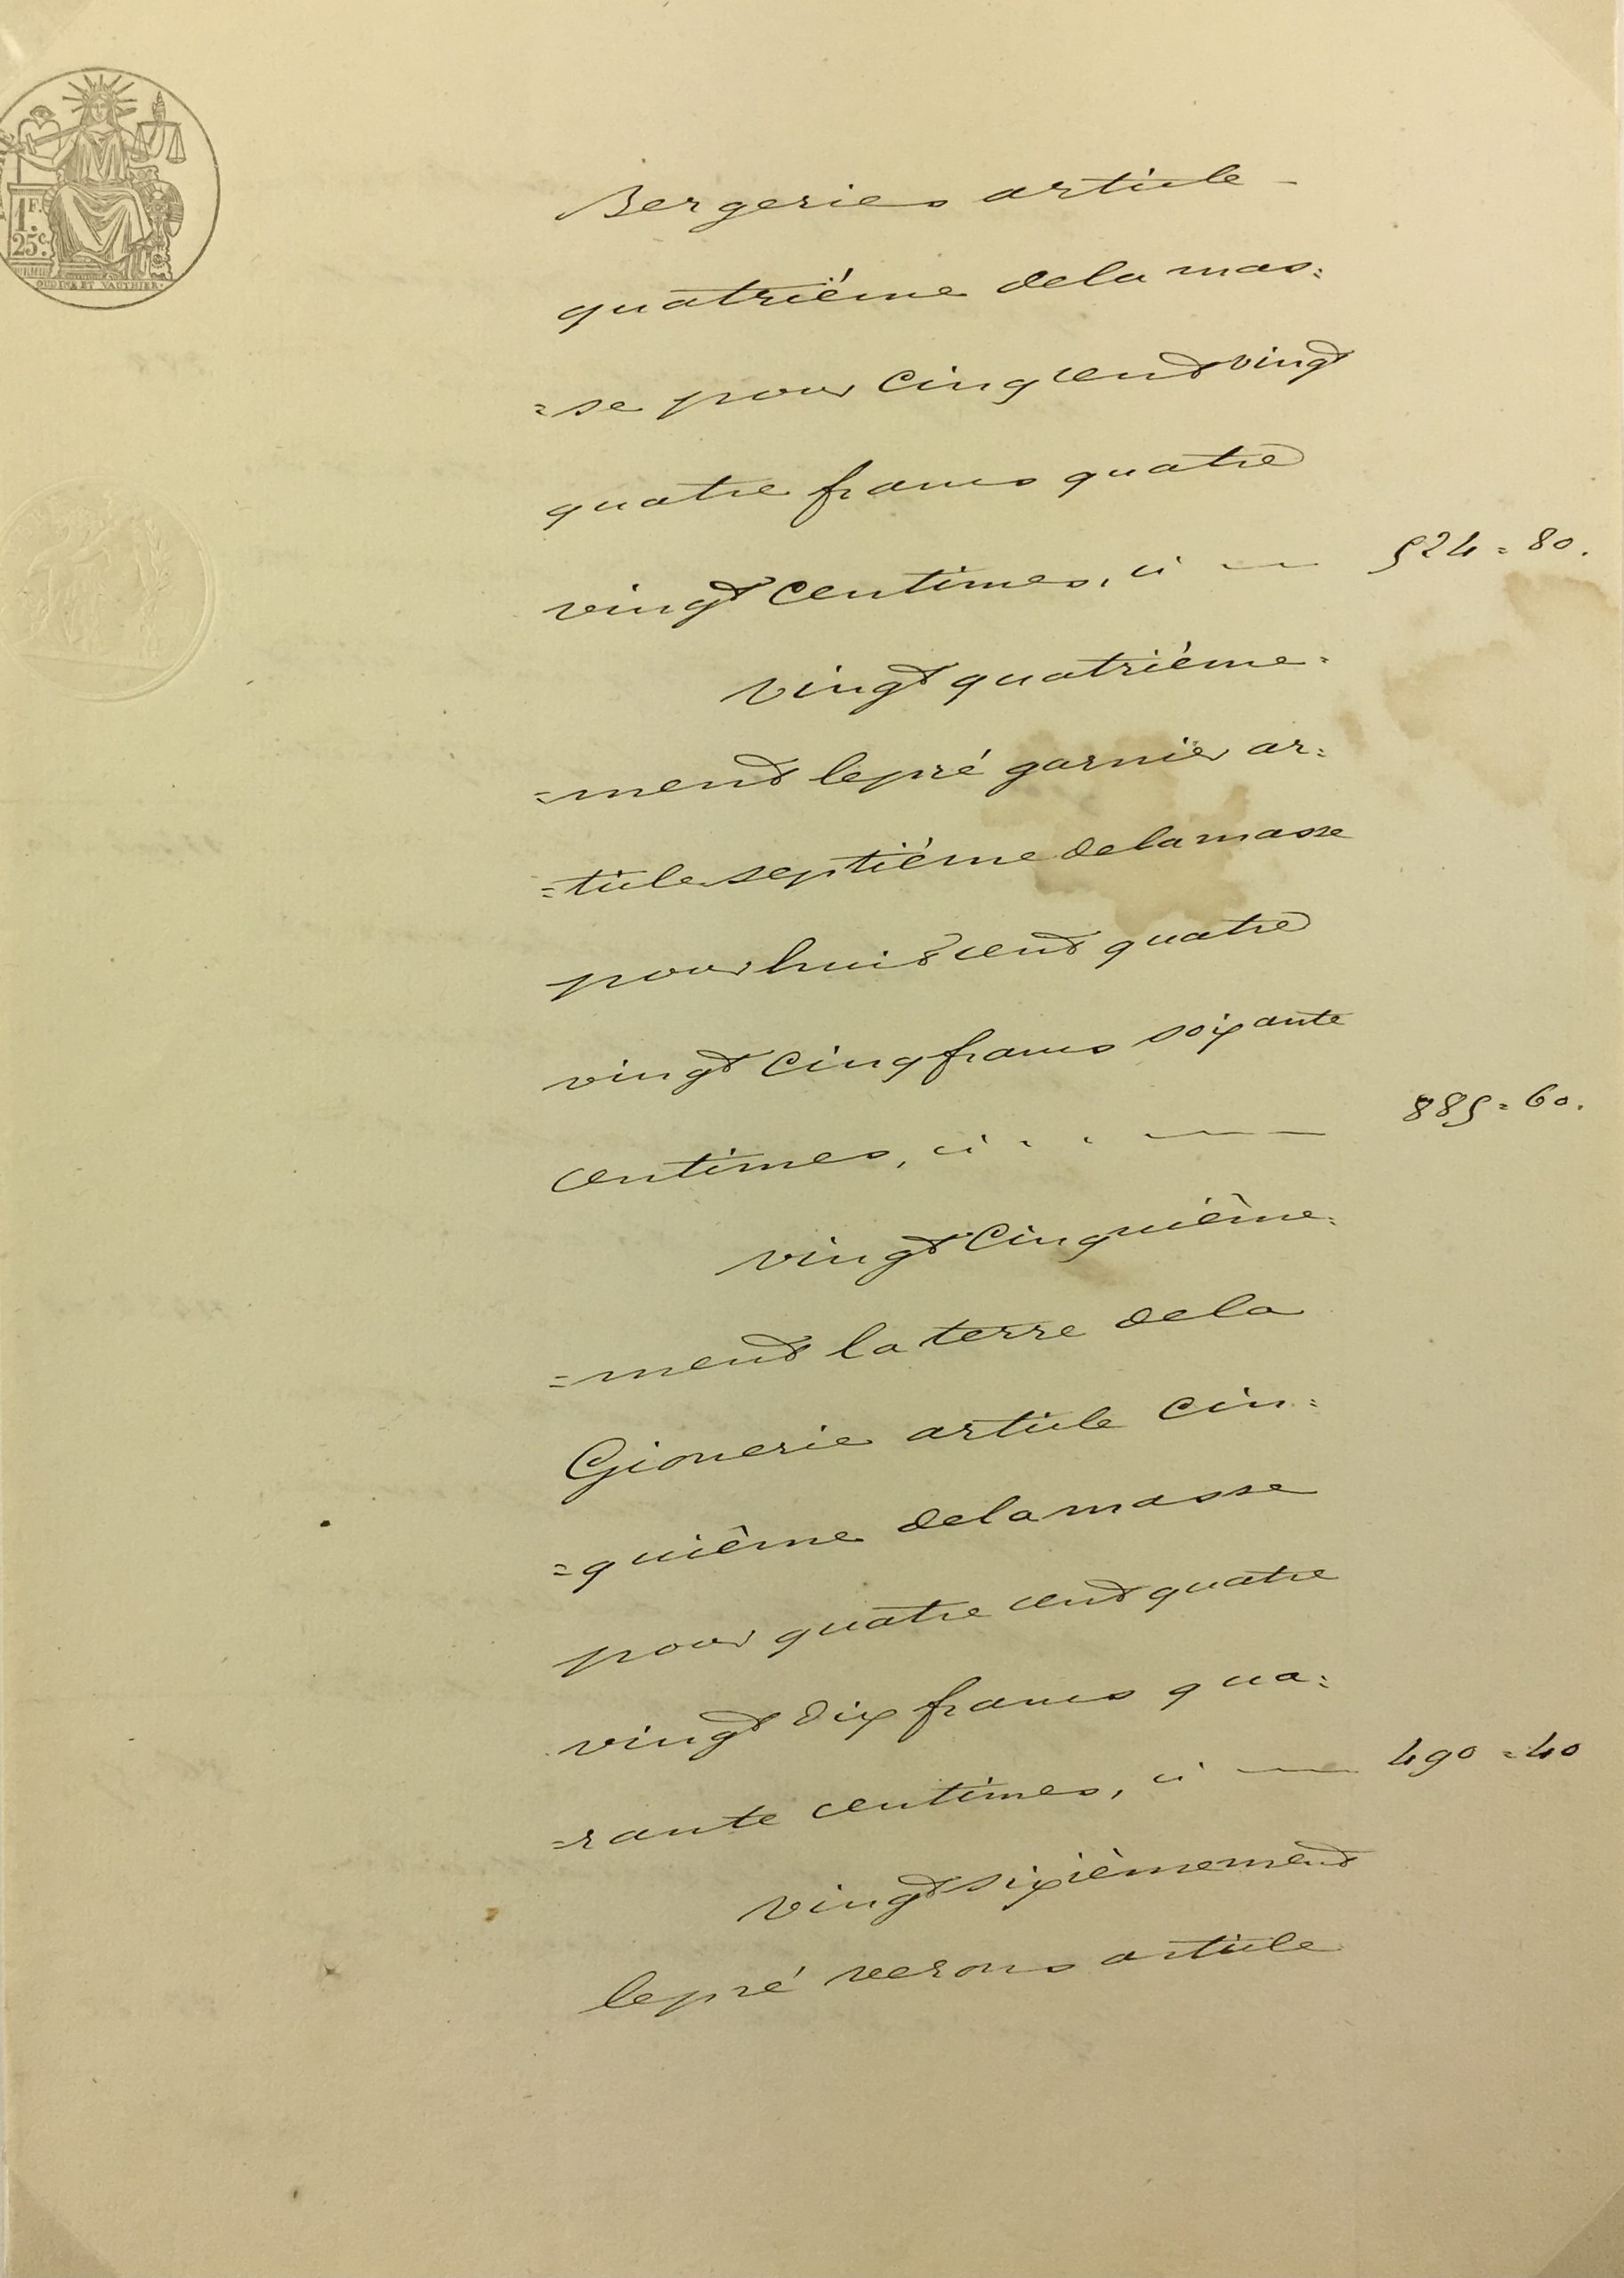 1F.
25c.
OUDINÉ ET VAUTHIER.
Bergeries article -
quatriéme dela mas=
=se pour Cinq cent vingt
quatre francs quatre
vingt Centimes, ci — 524=80.
Vingt quatriéme=
=ment lepré garnier ar=
=ticle septiéme dela masse
pour huit cent quatre
vingt Cinq francs soixante
Centimes, ci - - — 885=60.
Vingt Cinquième=
=ment la terre dela
Gionerie article Cin=
=quième dela masse
pour quatre cent quatre
vingt dix francs qua=
=rante centimes, ci — 490=40
Vingt sixièmement
lepré article